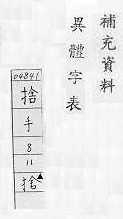 補充資料
異體字表
04841
捨
手
8
11
捨